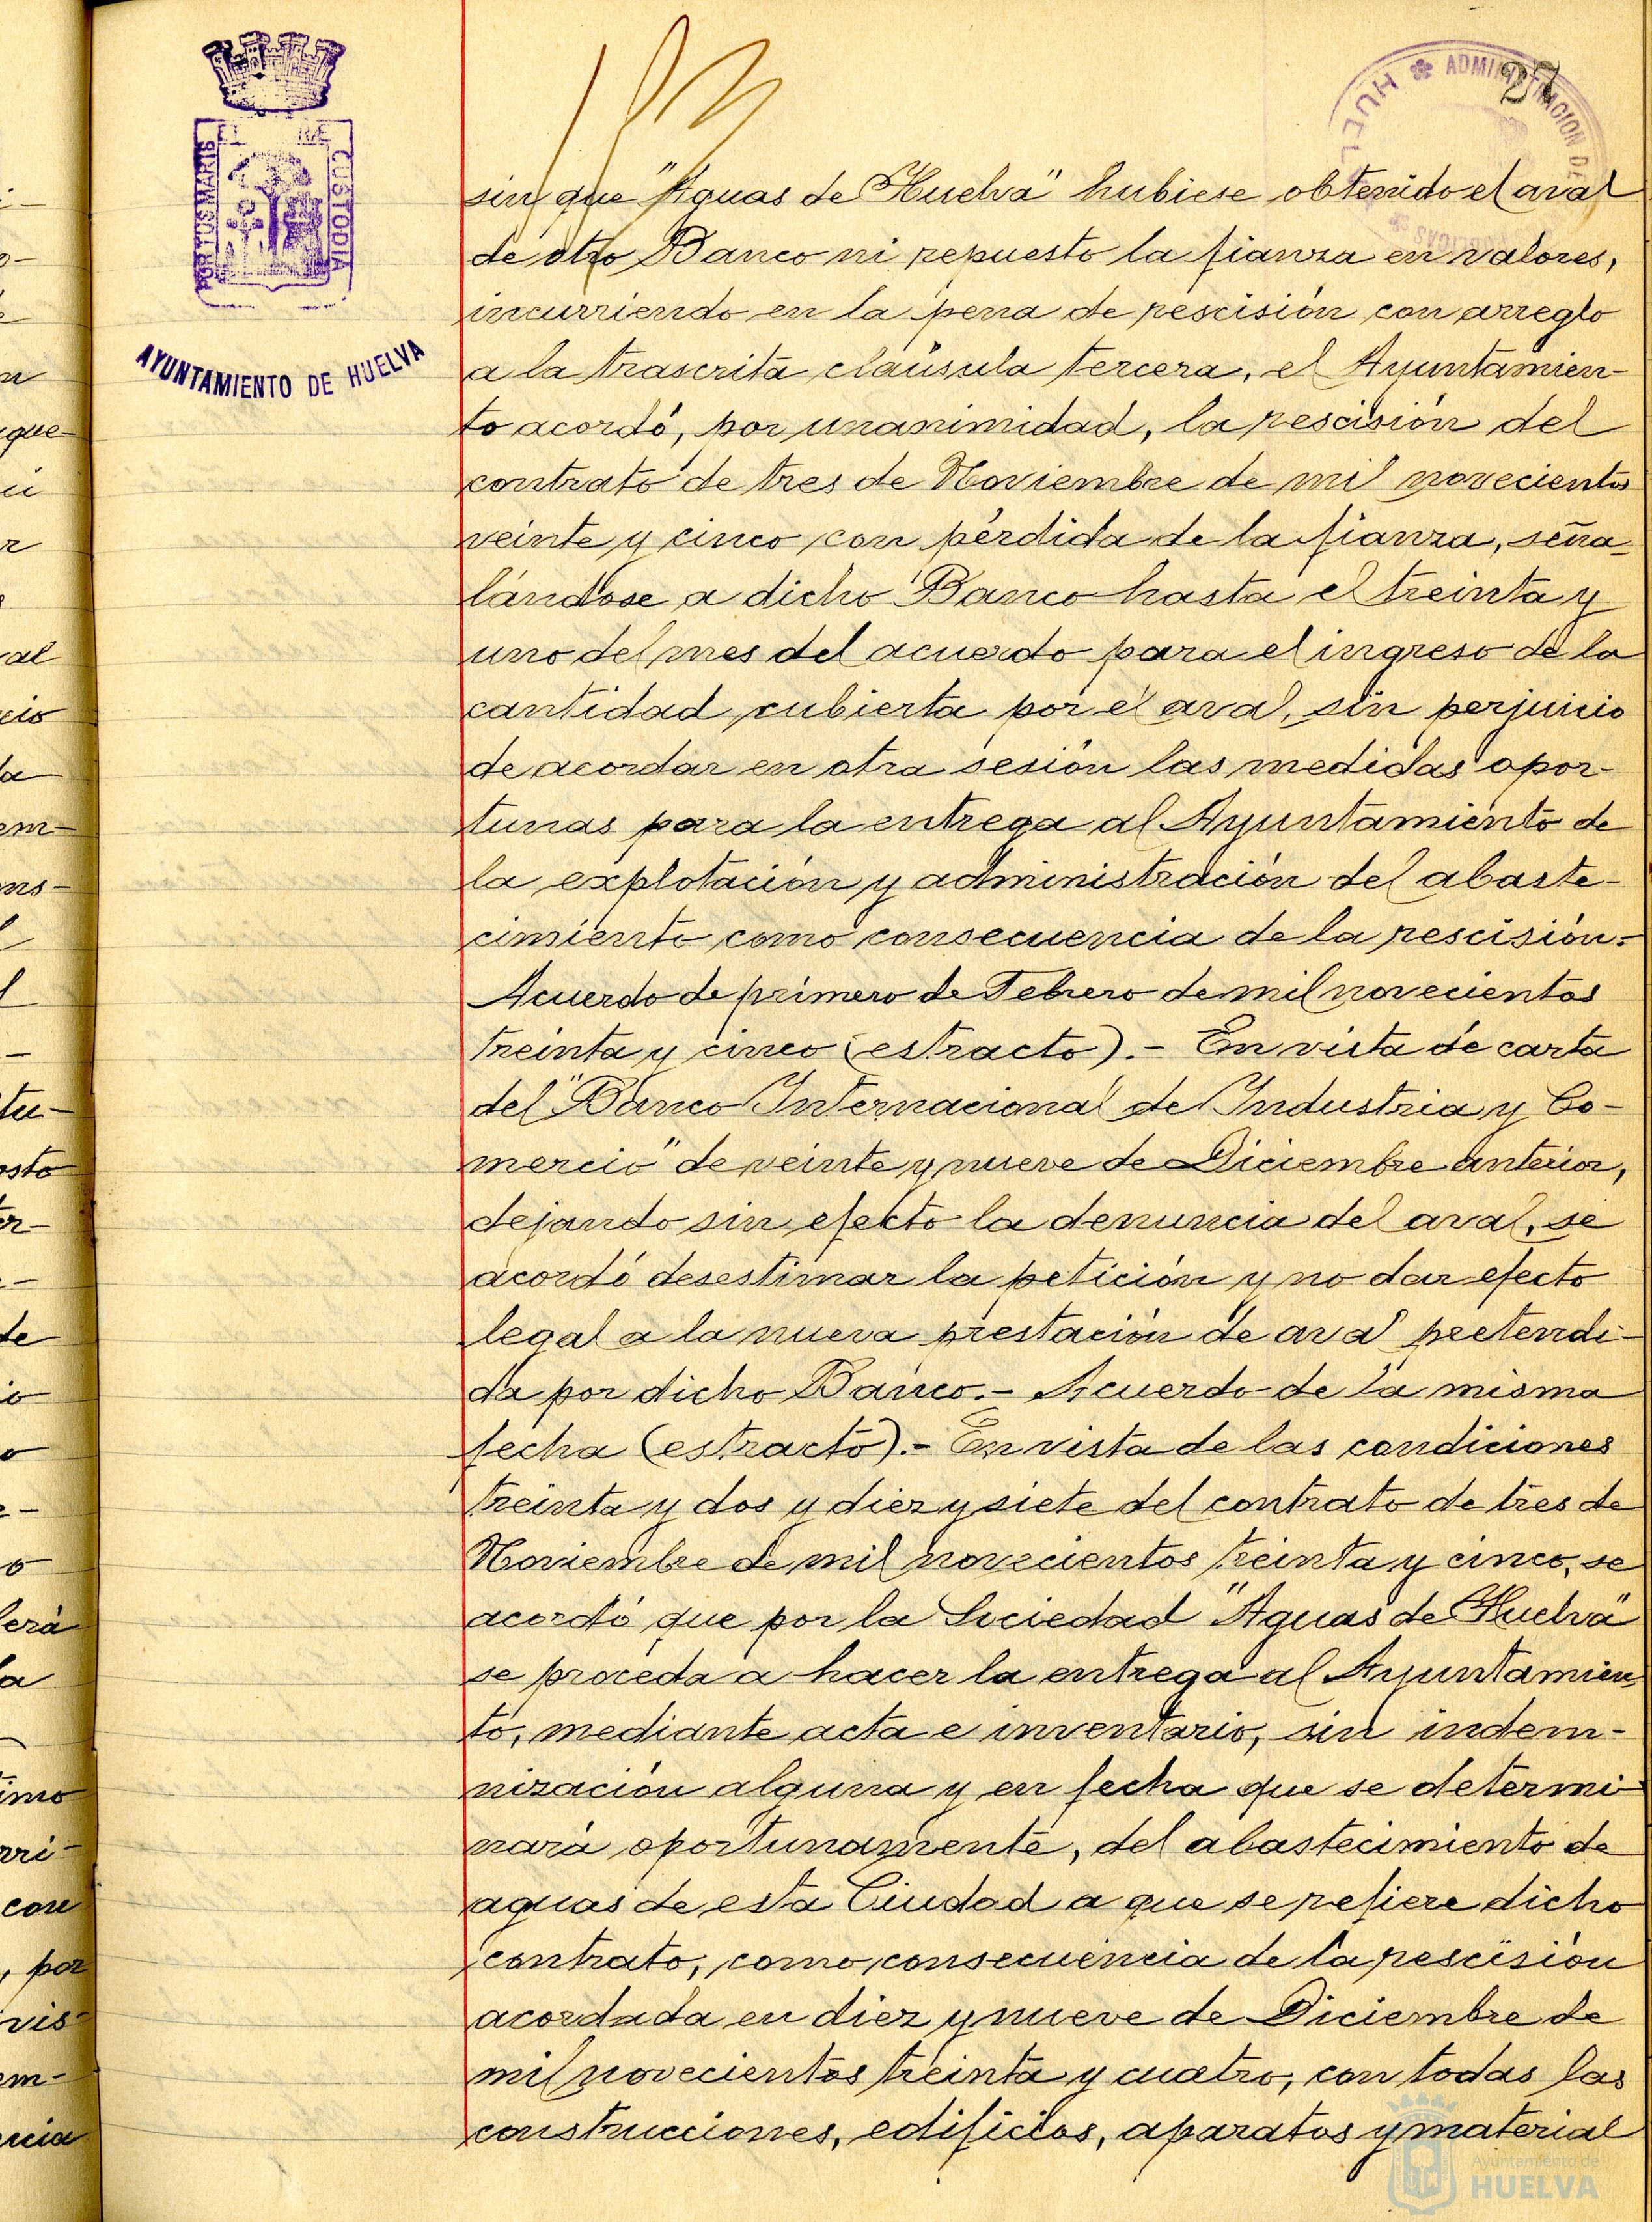 27
ADMINISTRACION DE
HUELVA
PORTUS MARIS
CUSTODIA
AYUNTAMIENTO DE HUELVA
sin que "Aguas de Huelva" hubiese obtenido el aval
de otro Banco ni repuesto la fianza en valores,
incurriendo en la pena de rescisión con arreglo
a la trascrita claúsula tercera, el Ayuntamien-
to acordó, por unanimidad, la rescisión del
contrato de tres de Noviembre de mil novecientos
veinte y cinco con pérdida de la fianza, seña-
lándose a dicho Banco hasta el treinta y
uno del mes del acuerdo para el ingreso de la
cantidad cubierta por el aval, sin perjuicio
de acordar en otra sesión las medidas opor-
tunas para la entrega al Ayuntamiento de
la explotación y administración del abaste-
cimiento como consecuencia de la rescisión.-
Acuerdo de primero de Febrero de mil novecientos
treinta y cinco (estracto).- En vista de carta
del "Banco Internacional de Industria y Co-
mercio" de veinte y nueve de Diciembre anterior,
dejando sin efecto la denuncia del aval, se
acordó desestimar la petición y no dar efecto
legal a la nueva prestación de aval pretendi-
da por dicho Banco.- Acuerdo de la misma
fecha (estracto).- En vista de las condiciones
treinta y dos y diez y siete del contrato de tres de
Noviembre de mil novecientos treinta y cinco, se
acordó que por la Sociedad "Aguas de Huelva"
se proceda a hacer la entrega al Ayuntamien
to, mediante acta e inventario, sin indem-
nización alguna y en fecha que se determi
nará oportunamente, del abastecimiento de
aguas de esta Ciudad a que se refiere dicho
contrato, como consecuencia de la rescisión
acordada en diez y nueve de Diciembre de
mil novecientos treinta y cuatro, con todas las
construcciones, edificios, aparatos y material
Ayuntamiento de
HUELVA